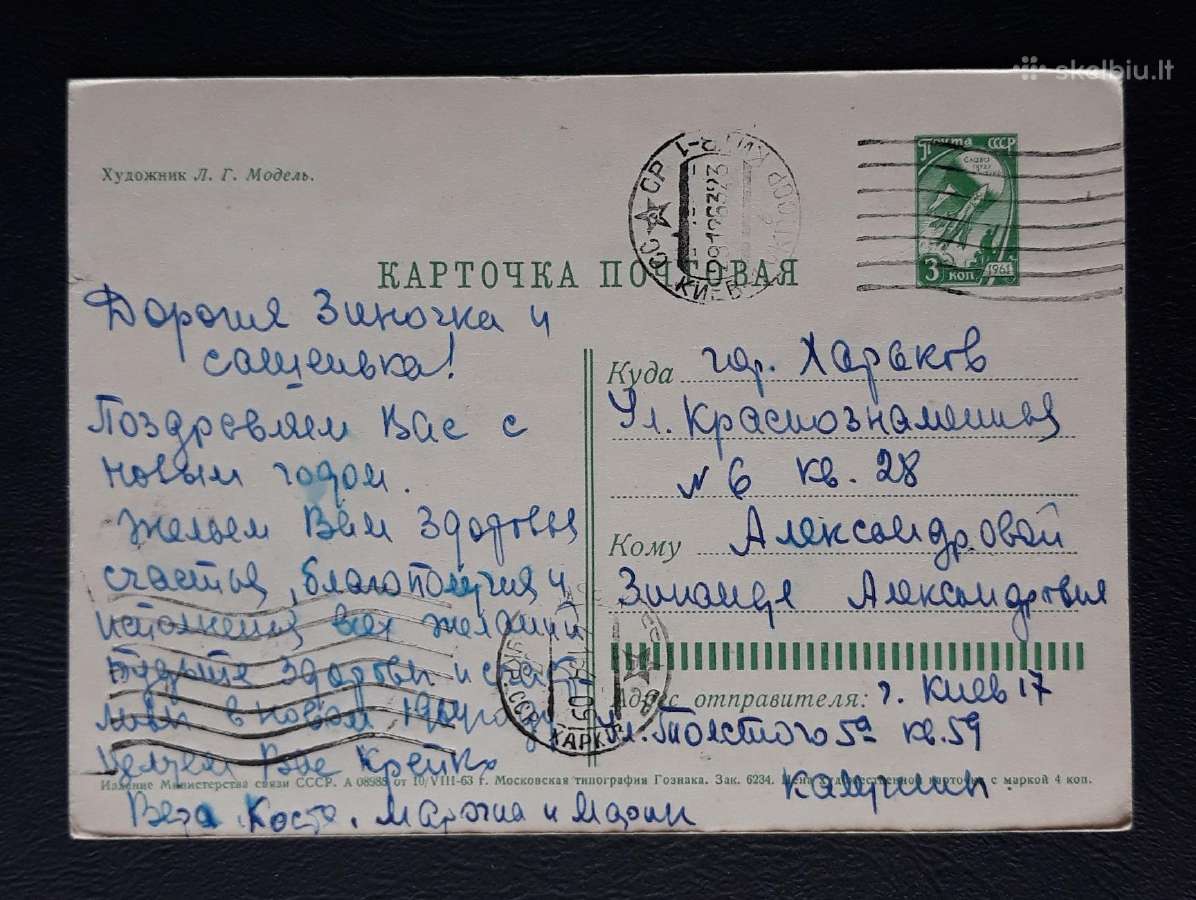 skelbiu.lt
Художник Л. Г. Модель.
Почта СССР
3 коп
1961
КАРТОЧКА ПОЧТОВАЯ
Дорогия Зиночка и
Поздровляем Вас с
новым годом.
Желаем Вам здоровья
счастья, благополучия и
исполнения всех желаний
Будьте здоровы и
в новом 1964 году
Целуем Вас Крепко
Вета, Костя, Маргина и Марик
Куда гор. Харьков
Ул. Краснознаменная
№ 6 кв. 28
Кому Александровой
Зинаиде Александровне
Адрес отправителя: г. Киев 17
Ул. Толстого 5а кв. 59
Издание Министерства связи СССР. А 08985 от 10/VIII-63 г. Московская типография Гознака. Зак. 6234. Цена художественной карточки с маркой 4 коп.